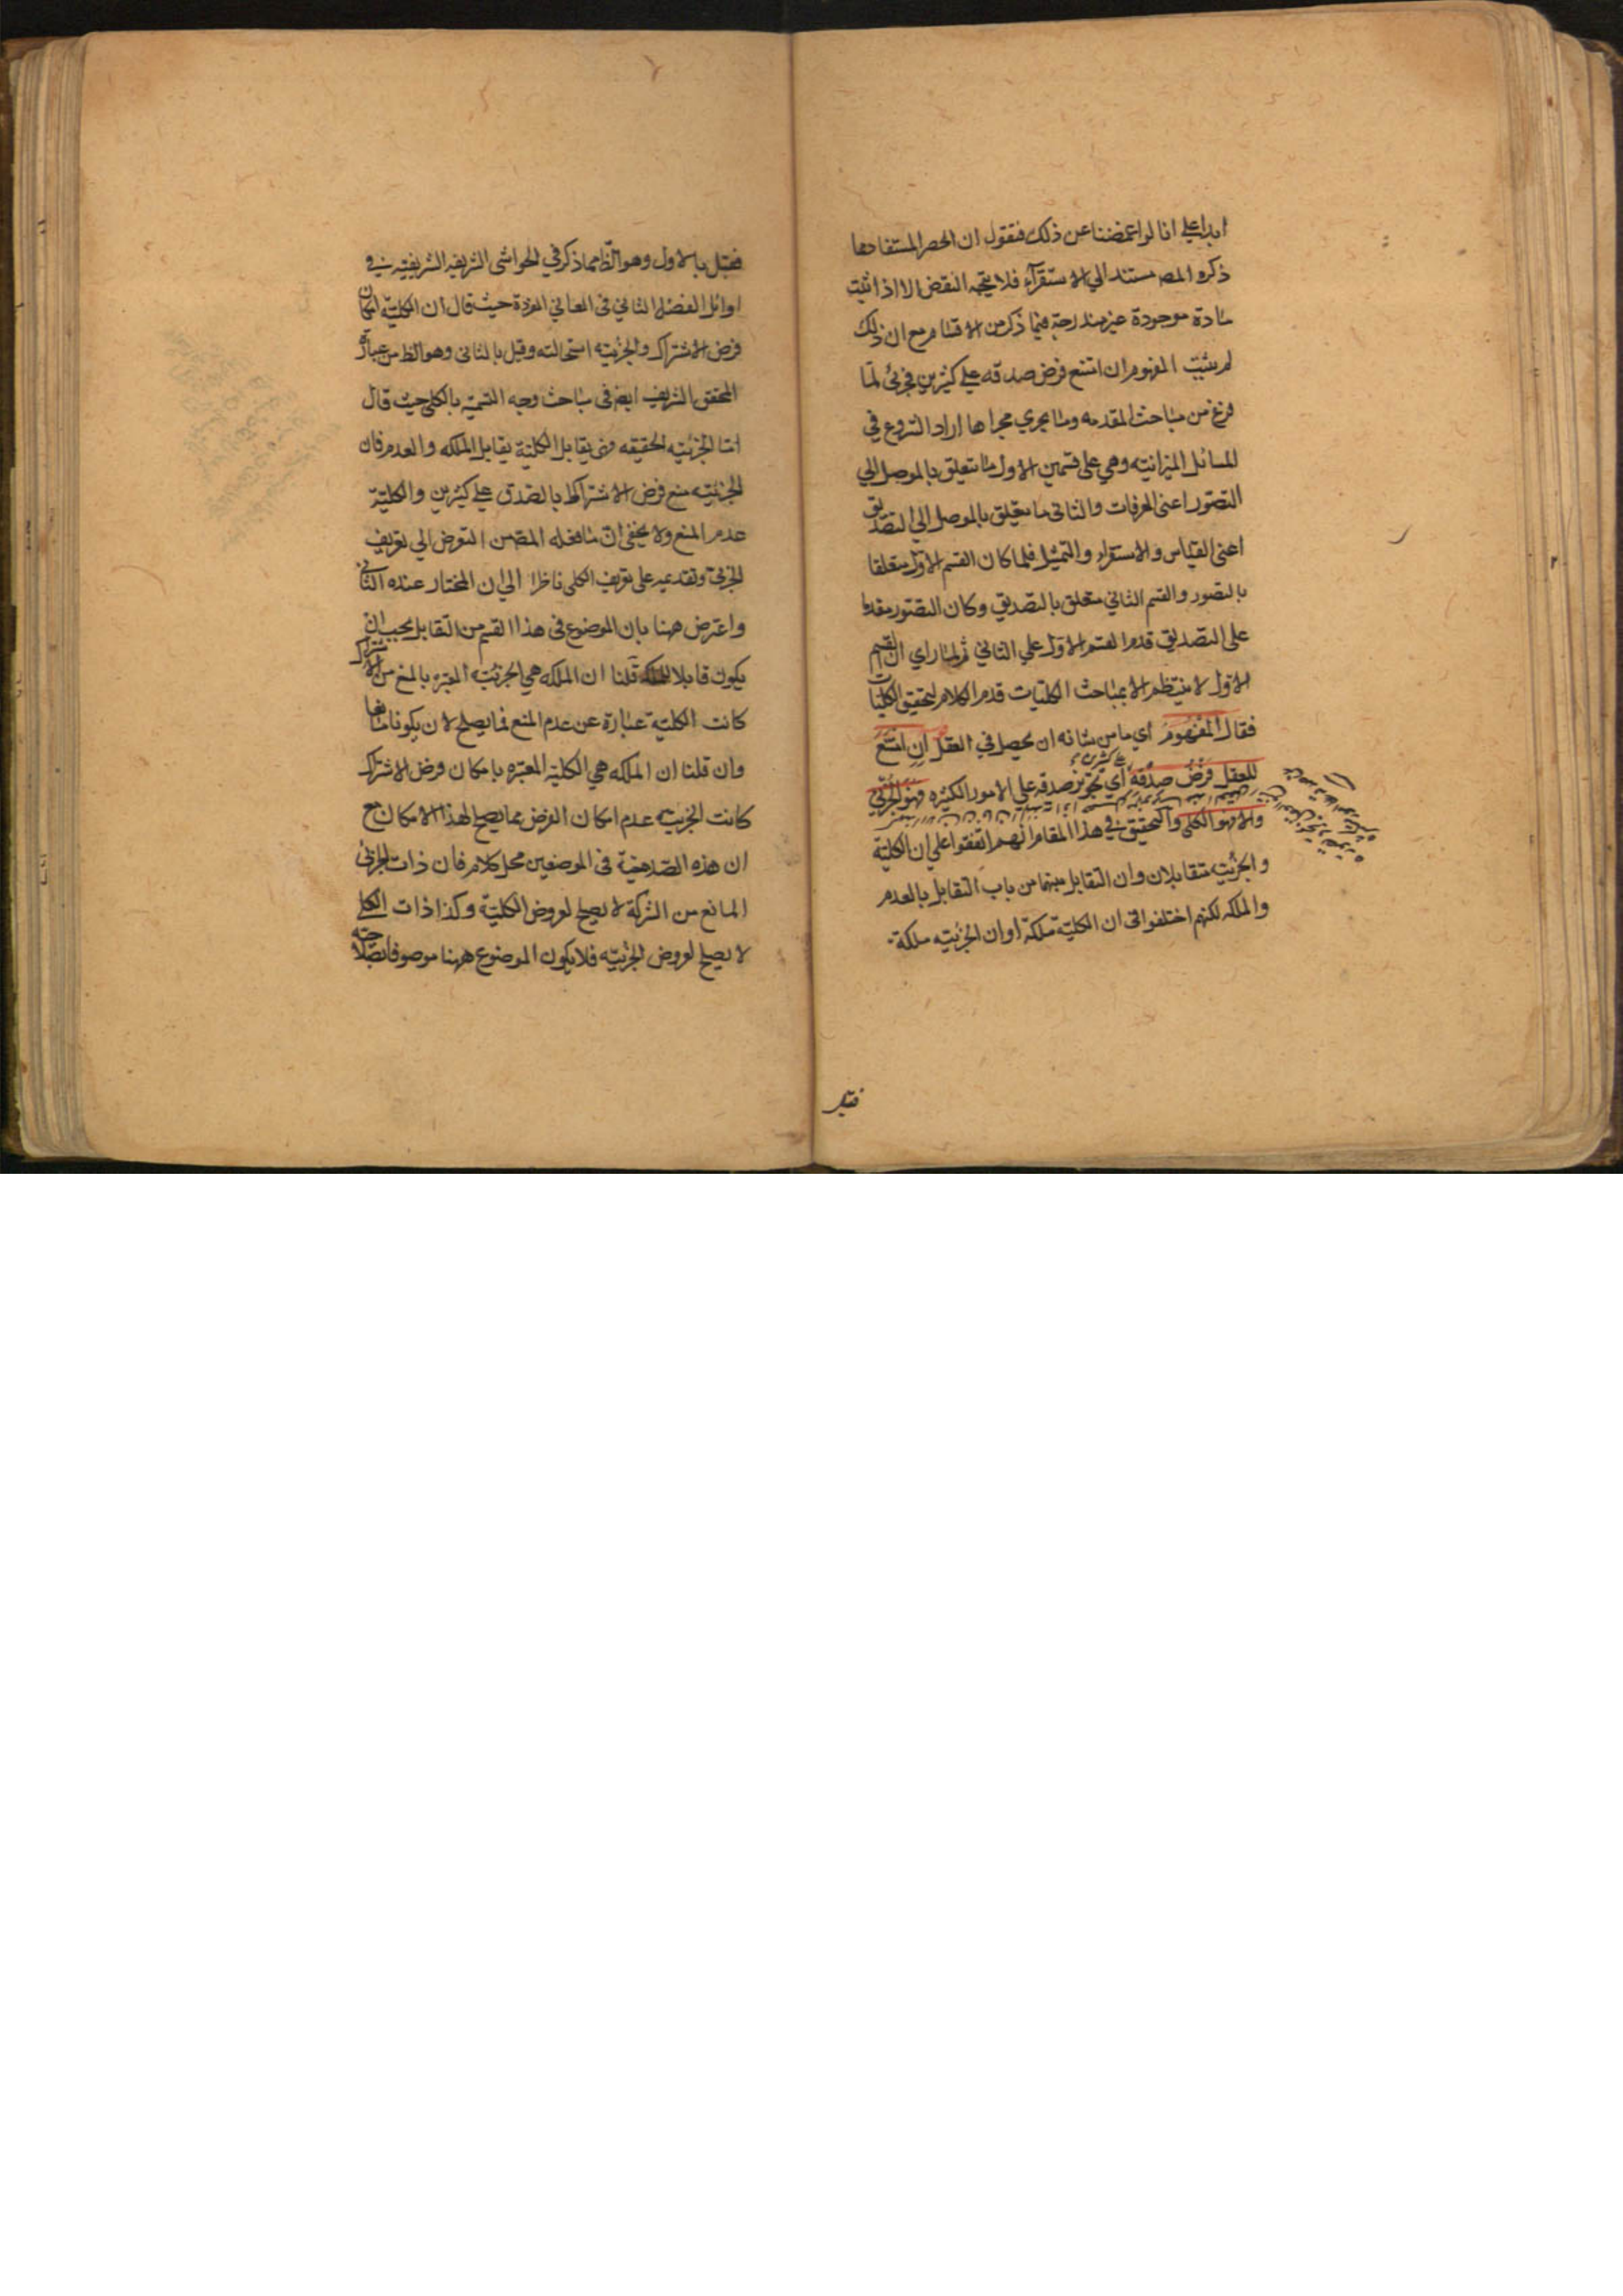 ابدا علي انا لو اغمضنا عن ذلك فنقول ان الحصر المستفاد مما
ذكره المصـ مستند الي الاستقرآء فلا يتجه النقض الا اذا ثبت
مادة موجودة غير مندرجة فيما ذكر من الاقسام مع ان ذلك
لم يثبت المفهوم ان امتنع فرض صدقه علي كثيرين فجزئي لما
فرغ من مباحث المقدمه وما يجري مجراها اراد الشروع في
المسائل الميزانيه وهي على قسمين الاول ما يتعلق بالموصل الي
التصور اعنى المعرفات والثانى ما يتعلق بالموصل الي التصديق
اعنى القياس والاستقراء والتمثيل فلما كان القسم الاول متعلقا
بالتصور والقسم الثاني متعلق بالتصديق وكان التصور مقدما
على التصديق قدم القسم الاول علي الثاني ثم لما راي ان القسم
الاول لا ينتظم الا بمباحث الكليات قدم الكلام لتحقيق الكليات
فقال المفهوم اي ما من شانه ان يحصل في العقل ان امتنع
للعقل فرض صدقه علي كثيرين اي تجويز صدقه علي الامور الكثيره فهو الجزئي
والا فهو الكلي والتحقيق في هذا المقام انهم اتفقوا علي ان الكلية
والجزئيه متقابلان وان التقابل بينهما من باب التقابل بالعدم
والملكه لكنهم اختلفوا فى ان الكليه ملكة او ان الجزئيه ملكة
فقيل
فقيل بالاول وهو الظ مما ذكر في الحواشى الشريفه الشريفيه في
اوائل الفصل الثاني فى المعاني المفردة حيث قال ان الكليه امكان
فرض الاشتراك والجزئيه استحالته وقيل بالثانى وهو الظ من عبارة
المحقق الشريف ايضا فى مباحث وجه التسميه بالكلي حيث قال
اما الجزئيه الحقيقه فهى يقابل الكلية يقابل الملكه والعدم فان
الجزئيه منع فرض الاشتراك بالصدق علي كثيرين والكلية
عدم المنع ولا يخفى ان ما فعله المصـ من التعرض الي تعريف
الجزئى وتقديمه على تعريف الكلى ناظرا الي ان المختار عنده الثاني
واعترض ههنا بان الموضوع فى هذا القسم من التقابل يجب ان
يكون قابلا للملكه قلنا ان الملكه هي الجزئيه المعبره بالمنع من الاشتراك
كانت الكلية عبارة عن عدم المنع فما يصلح لان يكون مانعا
وان قلنا ان الملكه هي الكليه المعبره بامكان فرض الاشتراك
كانت الجزئيه عدم امكان الفرض مما يصلح لهذا الامكان مع
ان هذه الصلاحية فى الموضعين محل كلام فان ذات الجزئي
المانع من الشركة لا يصلح لعروض الكلية وكذا ذات الكلي
لا يصلح لعروض الجزئيه فلا يكون الموضوع ههنا موصوفا بصلاحيته